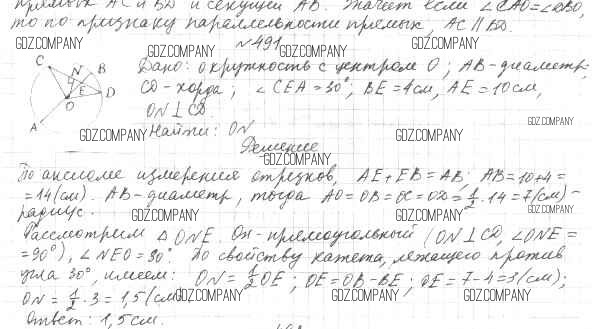 прямых AC и BD и секущей AB. Значит если ∠CAO=∠DBO,
то по признаку параллельности прямых, AC ∥ BD.
GDZ.COMPANY GDZ.COMPANY GDZ.COMPANY GDZ.COMPANY
№491
C N B Дано: окружность с центром O; AB-диаметр;
E D CD-хорда; ∠CEA=30°; BE=4см, AE=10см,
O ON⊥CD.
A Найти: ON
GDZ.COMPANY GDZ.COMPANY GDZ.COMPANY
Решение
GDZ.COMPANY
По аксиоме измерения отрезков, AE+EB=AB; AB=10+4=
=14(см). AB-диаметр, тогда AO=OB=OC=OD=1/2·14=7(см)-
радиус.
GDZ.COMPANY GDZ.COMPANY GDZ.COMPANY GDZ.COMPANY
Рассмотрим △ONE. Он-прямоугольный (ON⊥CD, ∠ONE=
=90°), ∠NEO=30°. По свойству катета, лежащего против
угла 30°, имеем: ON=1/2OE; OE=OB-BE; OE=7-4=3(см);
ON=1/2·3=1,5(см)
GDZ.COMPANY GDZ.COMPANY GDZ.COMPANY
Ответ: 1,5см.